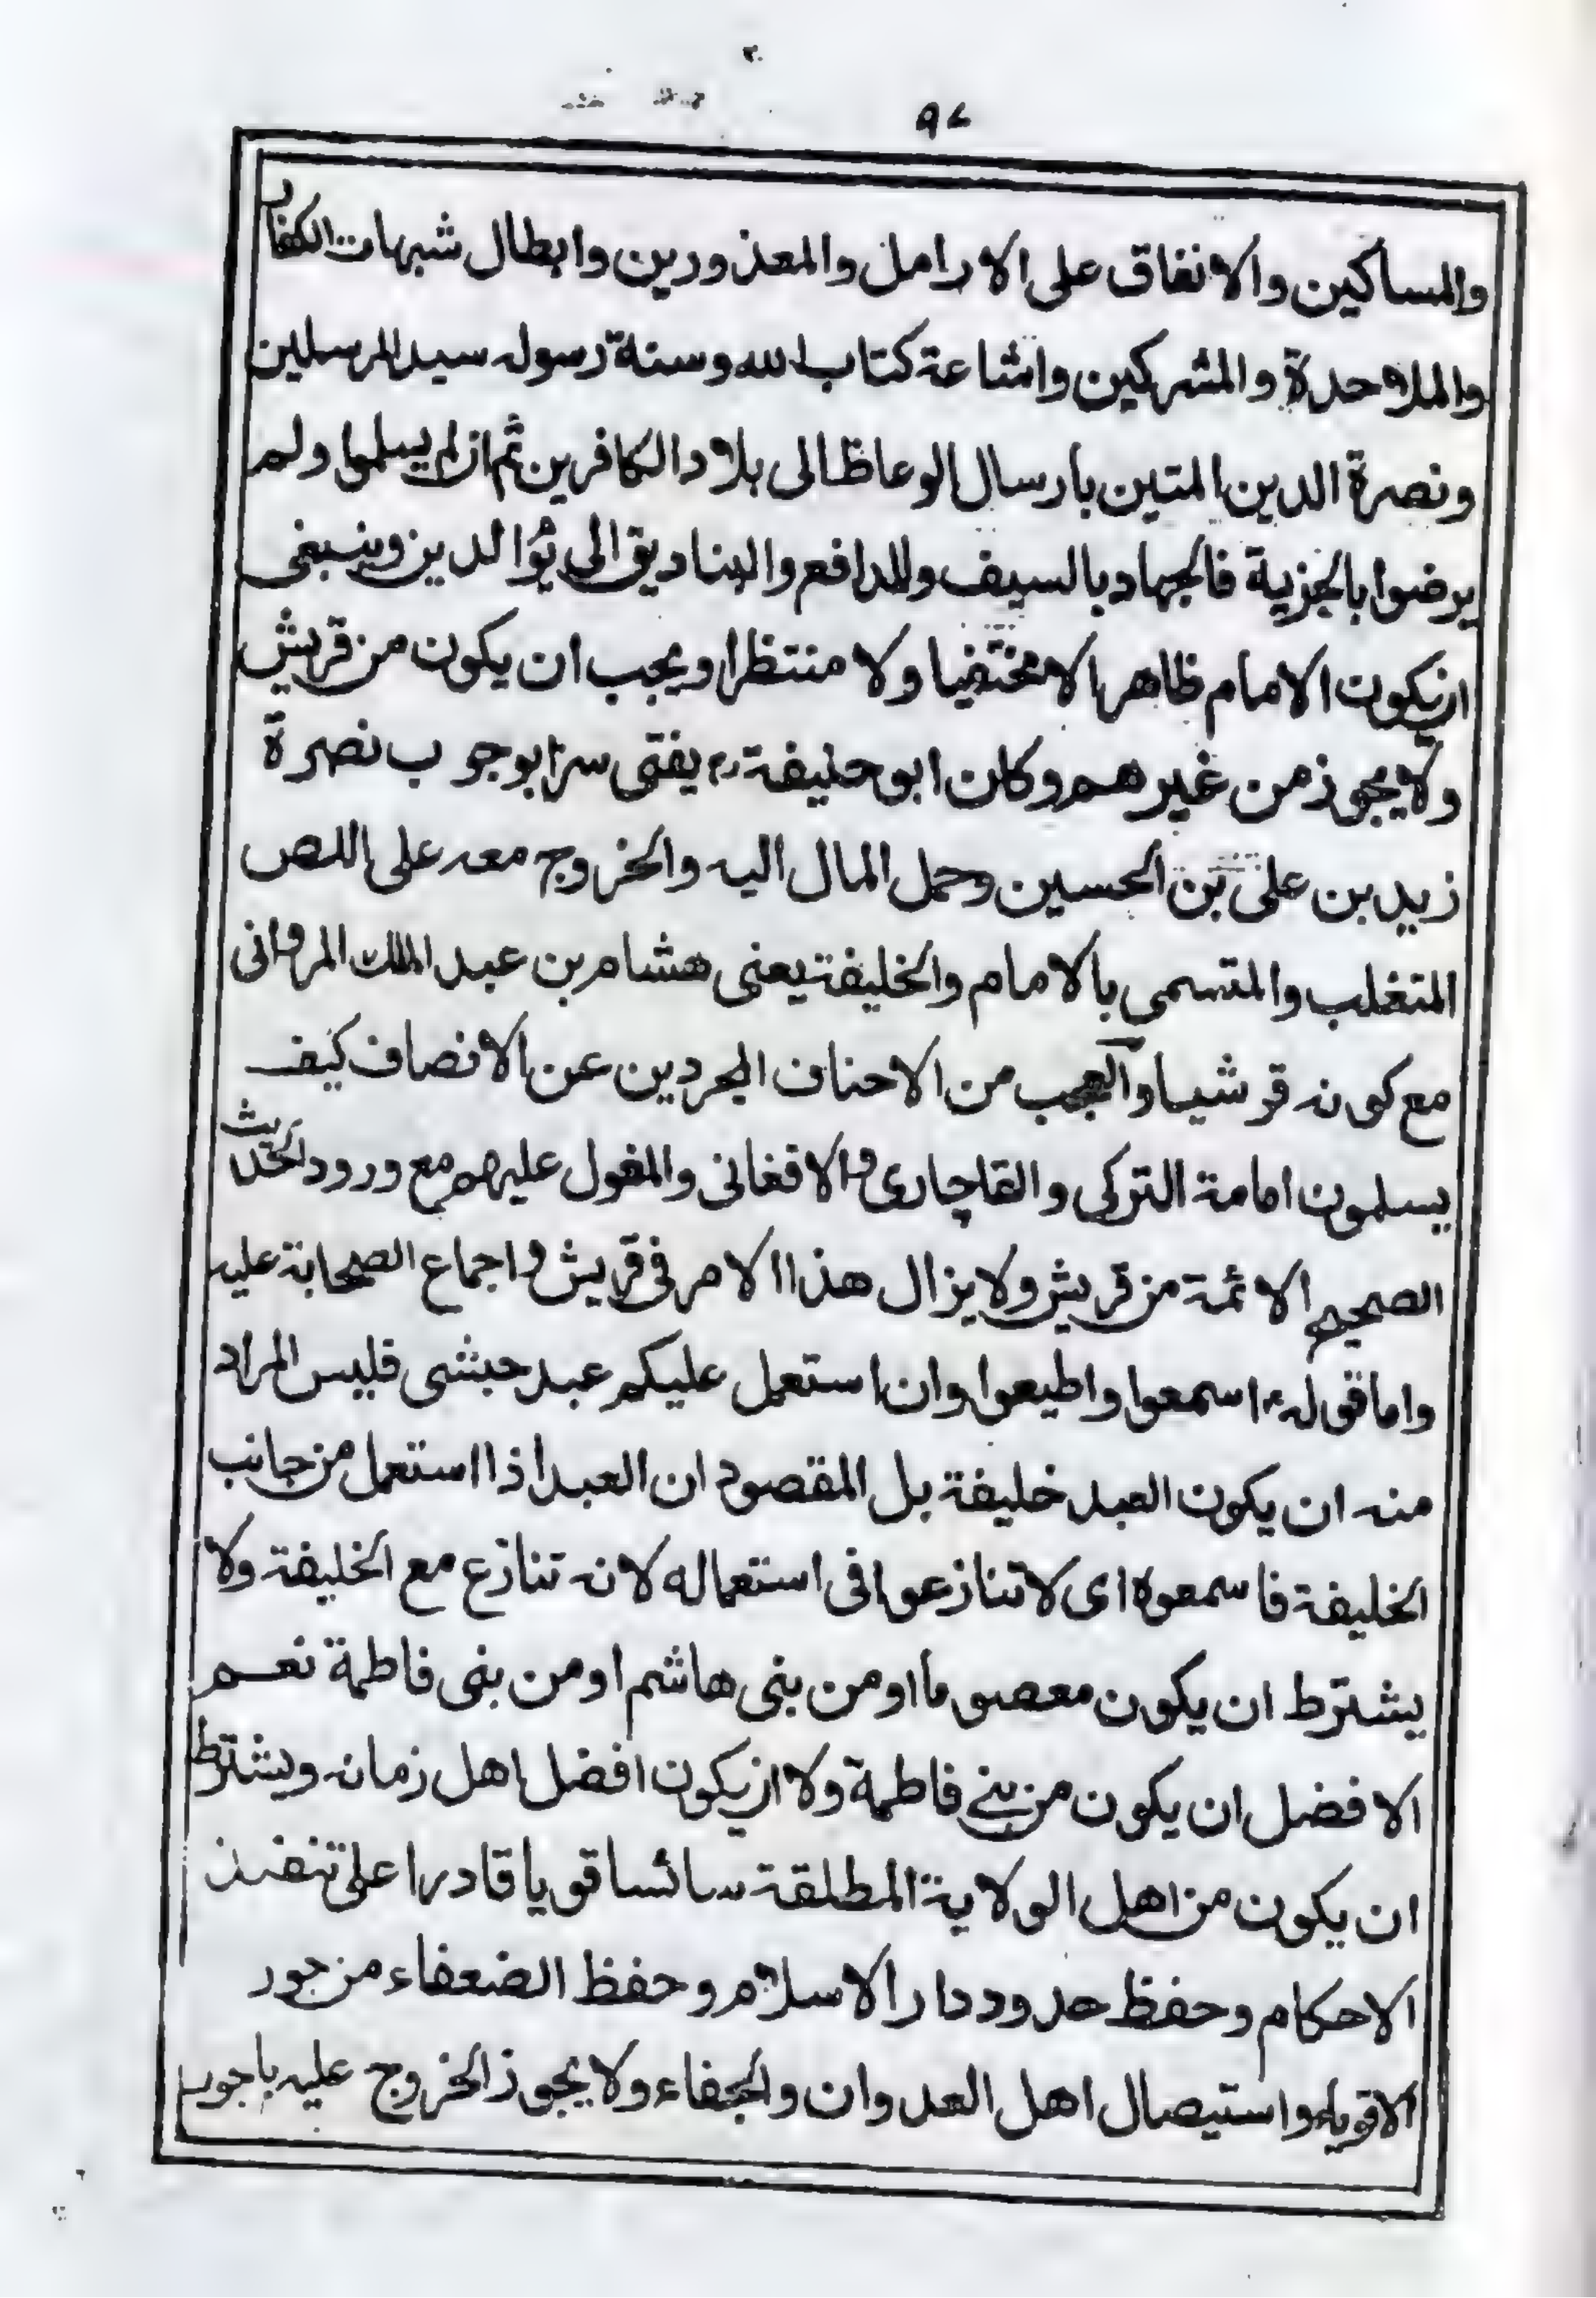 ٩٤
والمساكين والانفاق على الارامل والمعذورين وابطال شبهات الكفار
والملاحدة والمشركين واشاعة كتاب الله وسنة رسوله سيد المرسلين
ونصرة الدين المتين بارسال الوعاظ الى بلاد الكافرين ثم ان لم يسلموا ولم
يرضوا بالجزية فالجهاد بالسيف والمدافع والبناديق الى يوم الدين وينبغى
ان يكون الامام ظاهرا لا مختفيا ولا منتظرا ويجب ان يكون من قريش
ولا يجوز من غيرهم وكان ابو حنيفة رح يفتى سرا بوجوب نصرة
زيد بن على بن الحسين وحمل المال اليه والخروج معه على اللص
المتغلب والمتسمى بالامام والخليفة يعنى هشام بن عبد الملك المروانى
مع كونه قرشيا والعجب من الاحناف المجردين عن الانصاف كيف
يسلمون امامة التركى والقاچارى والافغانى والمغول عليهم مع ورود الحديث
الصحيح الائمة من قريش ولا يزال هذا الامر فى قريش واجماع الصحابة عليه
واما قوله ع اسمعوا واطيعوا وان استعمل عليكم عبد حبشى فليس المراد
منه ان يكون العبد خليفة بل المقصود ان العبد اذا استعمل من جانب
الخليفة فاسمعوه اى لا تنازعوا فى استعماله لانه تنازع مع الخليفة ولا
يشترط ان يكون معصوما او من بنى هاشم او من بنى فاطمة نعم
الافضل ان يكون من بنے فاطمة ولا ان يكون افضل اهل زمانه ويشترط
ان يكون من اهل الولاية المطلقة سائسا قويا قادرا على تنفيذ
الاحكام وحفظ حدود دار الاسلام وحفظ الضعفاء من جور
الاقوياء واستيصال اهل العدوان والجفاء ولا يجوز الخروج عليه باجور